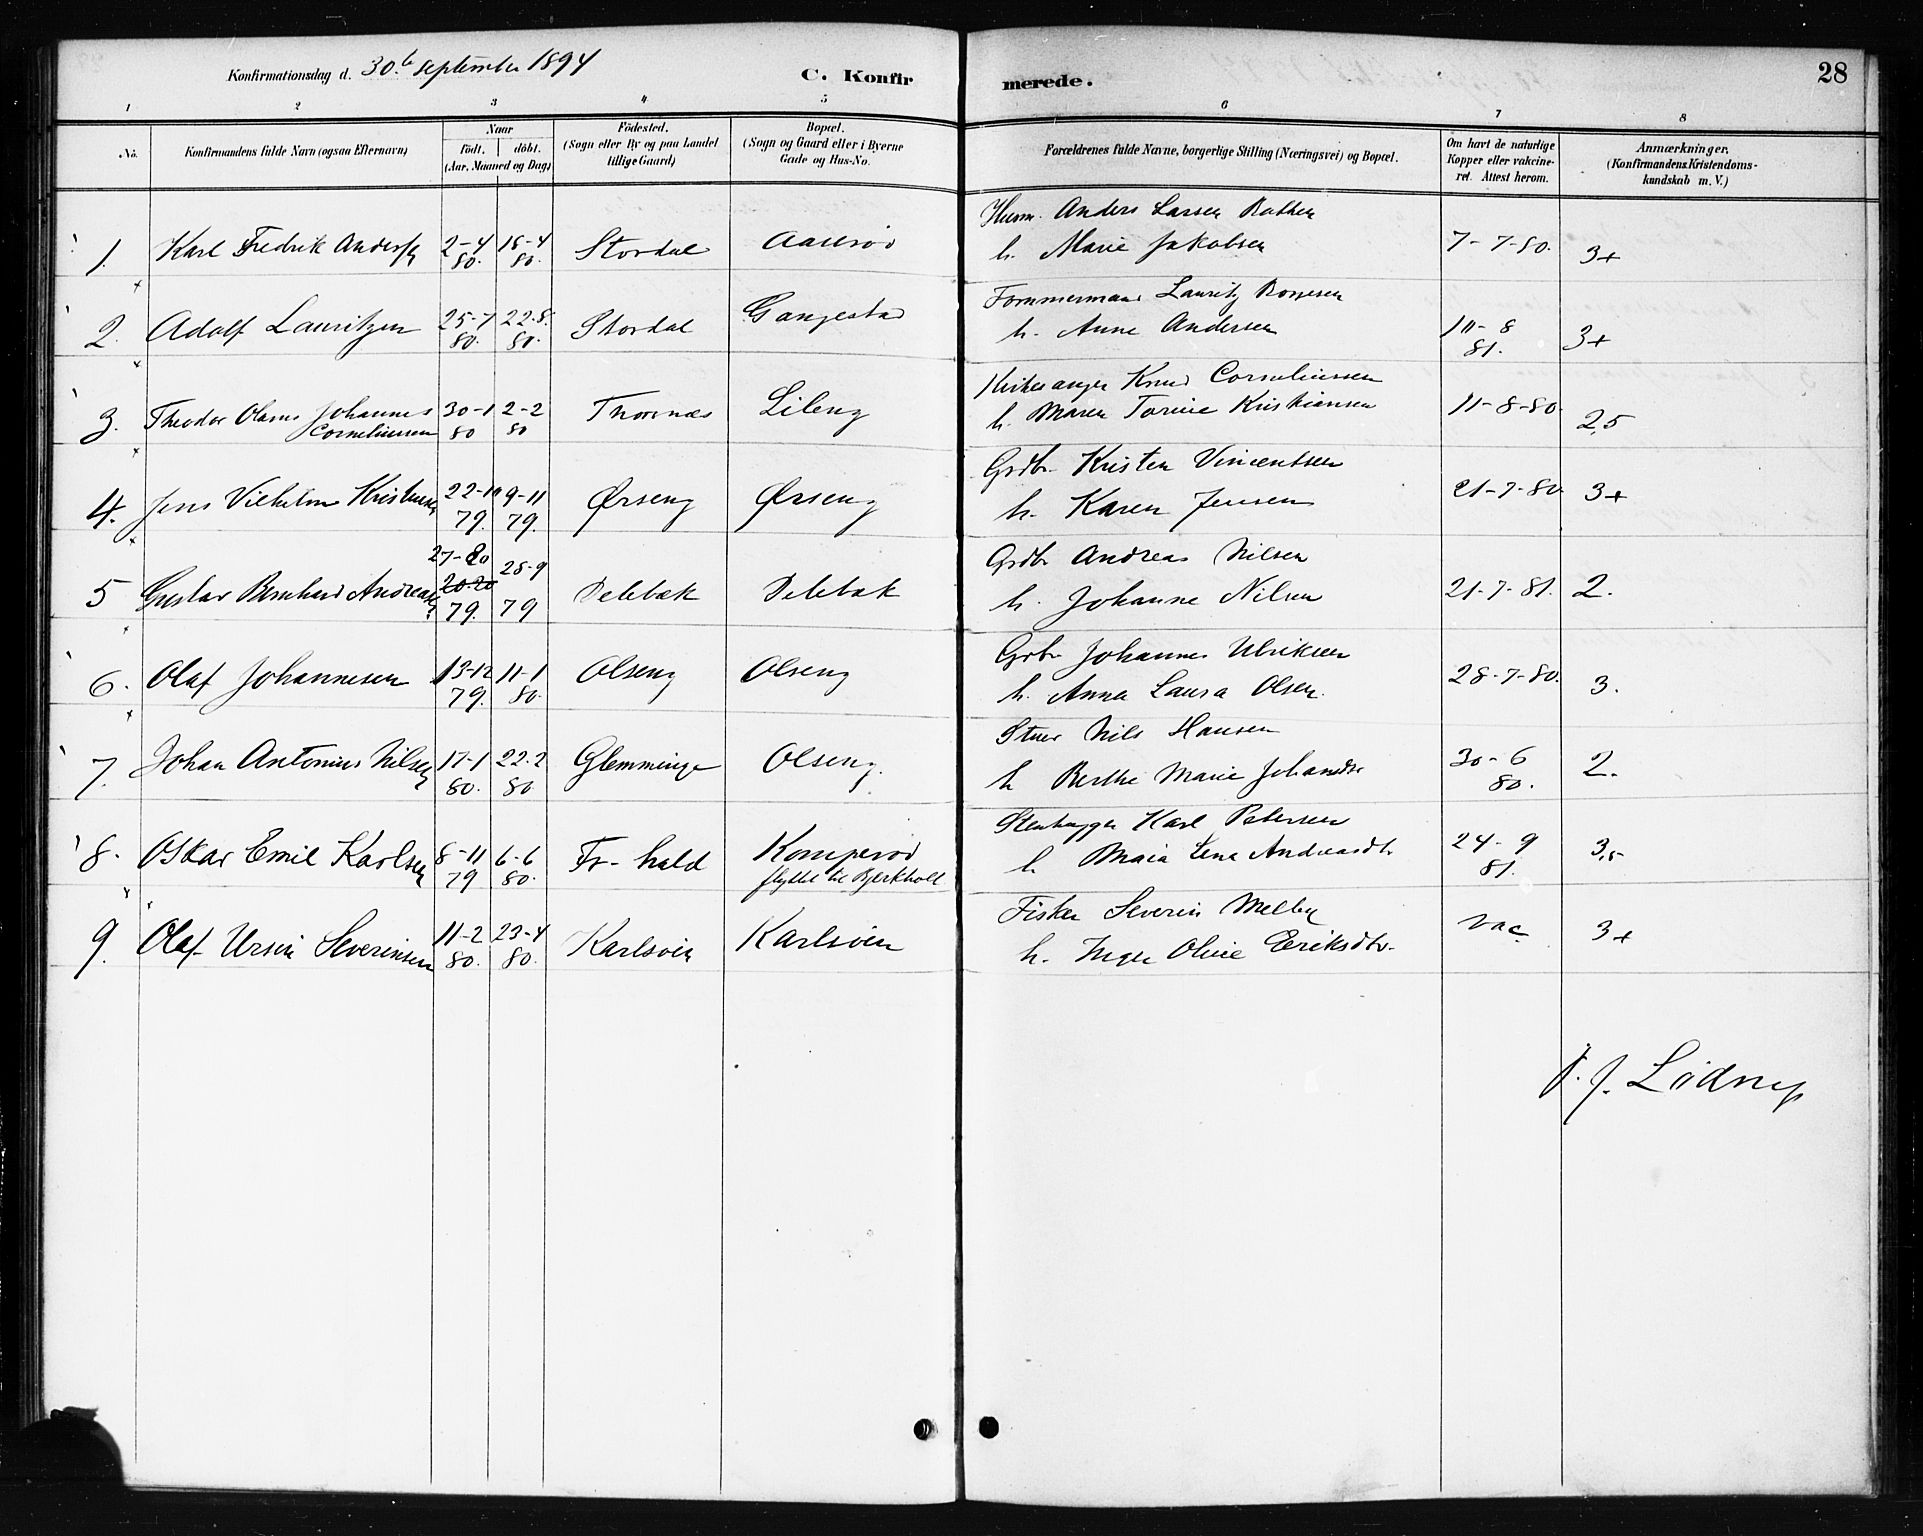 Konfirmationsdag d. 30.te september 1894
C. Konfirmerede.
28
1 2 3 4 5 6 7 8
No.
Konfirmandens fulde Navn (ogsaa Efternavn)
Naar
födt. | döbt.
(Aar, Maaned og Dag)
Födested.
(Sogn eller By og paa Landet
tillige Gaard)
Bopæl.
(Sogn og Gaard eller i Byerne
Gade og Hus-No.
Forældrenes fulde Navne, borgerlige Stilling (Næringsvei) og Bopæl.
Om havt de naturlige
Kopper eller vakcine-
ret. Attest herom.
Anmærkninger.
(Konfirmandens Kristendoms-
kundskab m. V.)
1. Karl Fredrik Anders 2-4 80. 18-4 80. Stordal Aaserød
Husm. Anders Larsen
h. Marie Jakobsen 7-7-80. 3+
2. Adolf Lauritzen 25-7 80. 22-8. 80. Stordal Gangestad
Tømmermand Lauritz
h. Anne Andersen 10-8 81. 3+
3. Theodor Olaus Johannes Corneliussen 30-1 80 2-2 80 Thorsnæs Lileng
Kirkesanger Knud Corneliussen
h. Maren Torine Kristiansen 11-8-80. 2,5
4. Jens Vilhelm 22-10 79. 9-11 79. Ørseng Ørseng
Grdbr. Kristen Vincentsen
h. Karen Jensen 21-7-80 3+
5 Gustav Bernhard 27-8 79. 28-9 79 Delebæk Delebæk
Grdbr Andreas Nilsen
h. Johanne Nilsen 21-7-81. 2.
6. Olaf Johannesen 13-12 79. 11-1 80. Olseng Olseng
Grbr Johannes Ulriksen
h. Anna Laura Olsen. 28-7-80. 3.
7. Johan Antonius Nilsen 17-1 80. 22-2 80 Glemminge Olseng.
Stuer Nils Hansen
h Berthe Marie Johansdtr 30-6 80. 2.
8. Oskar Emil Karlsen 8-11 79 6-6 80. Fr-hald Komperød
flyttet til Bjerkholt
Stenhugger Karl Petersen
h Maia Lena Andreasdtr. 24-9 81. 3,5
9. Olaf Ursin Severinsen 11-2 80. 23-4 80. Karlsøien Karlsøien
Fisker Severin Melby
h. Inger Oline Eriksdtr. vac. 3+
J. J. Lødrup